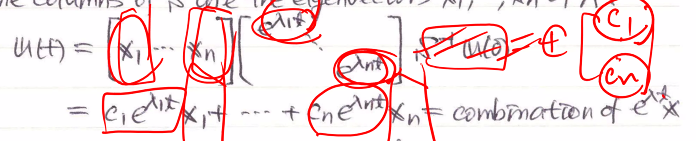 the columns of S are the eigenvectors x1, ..., xn
u(t) = [x1 ... xn] [e^λ1t ... e^λnt] S^-1 u(0) = [c1 cn]
= c1 e^λ1t x1 + ... + cn e^λnt xn = combination of e^λt x